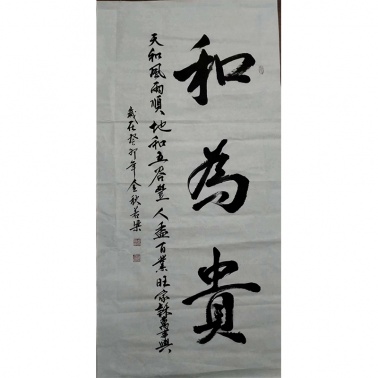 和為貴
天和風雨順地和五谷豐人孟百業旺家龢萬事興
歲在癸卯年金秋若梁